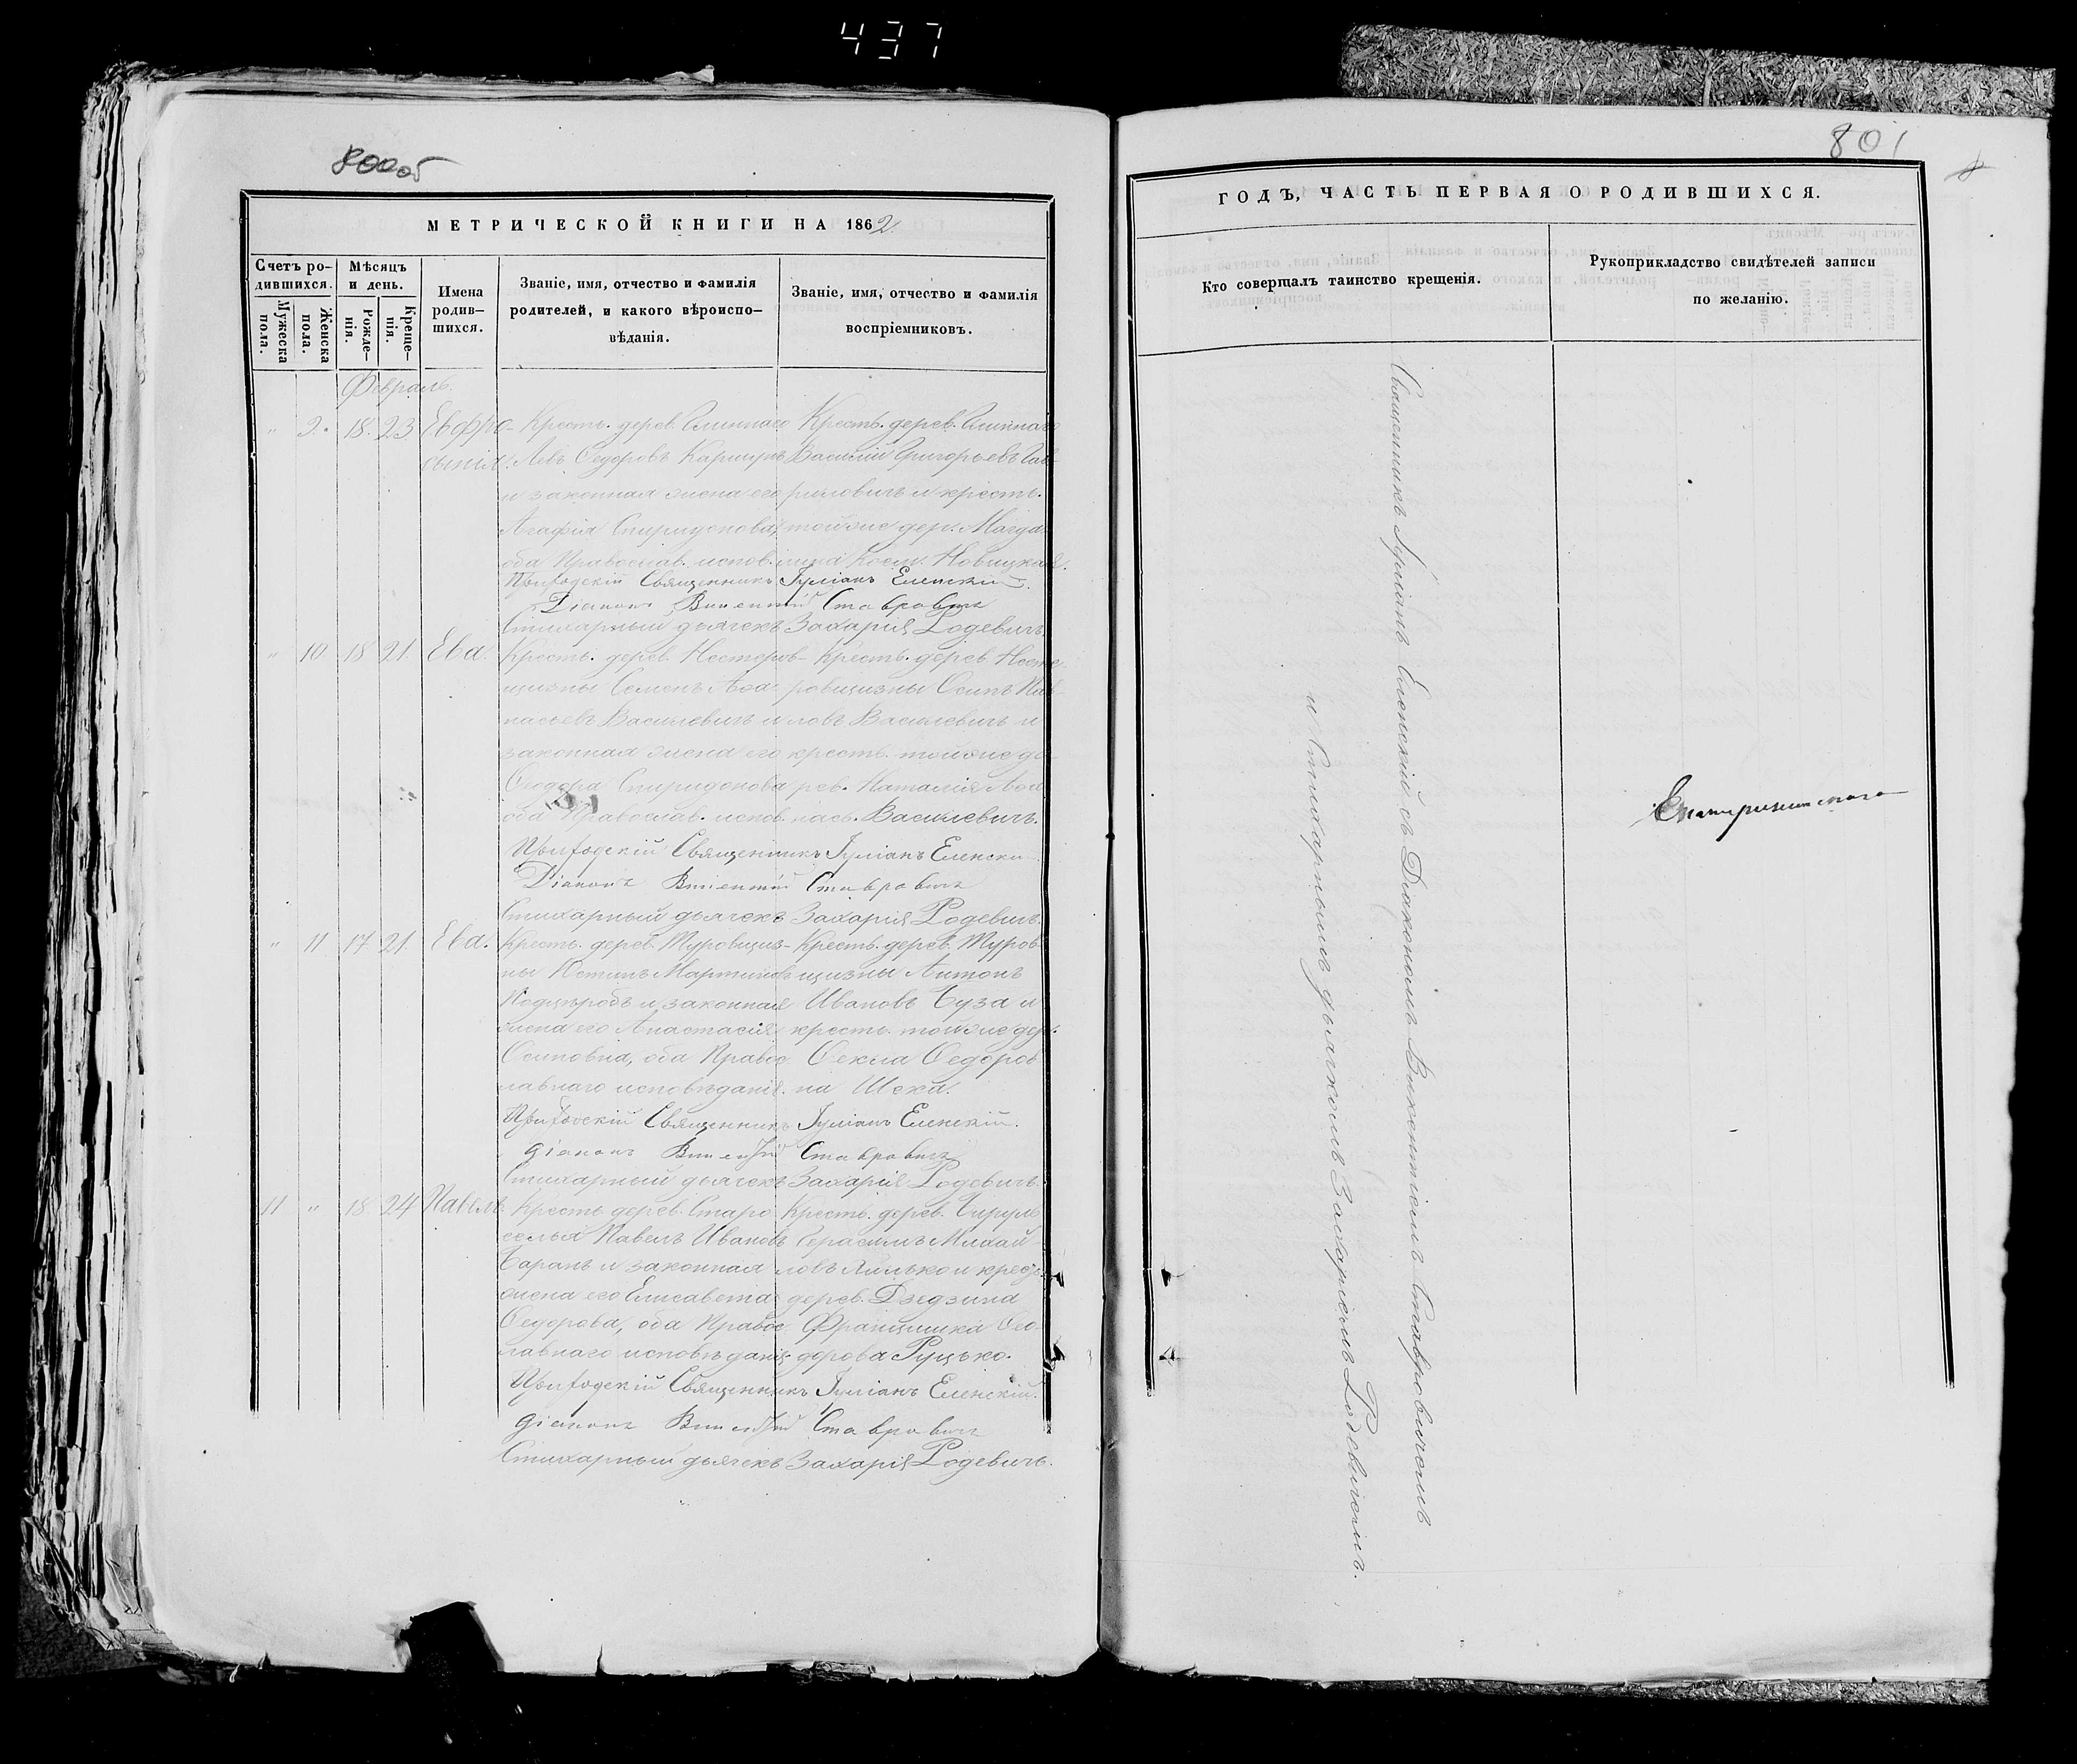 437
800об
МЕТРИЧЕСКОЙ КНИГИ НА 1862
Счетъ ро-
дившихся.
Мужеска
пола.
Женска
пола.
Мѣсяцъ
и день.
Рожде-
нія.
Креще-
нія.
Имена
родив-
шихся.
Званіе, имя, отчество и фамилія
родителей, и какого вѣроиспо-
вѣданія.
Званіе, имя, отчество и фамилія
воспріемниковъ.
Февраль.
" 9. 18. 23 Евфро-
сынія.
Крестъ. дерев.
Левъ Ѳедоровъ
и законная жена его
Агафія Спиридонова,
оба Православ. испов.
Крестъ. дерев.
Василій Григорьевъ Гав-
риловичъ и крестъ.
тойже дер. Магда-
лина Косм. Новицкая.
Приходскій Священникъ Іуліанъ Еленскій.
Діаконъ Викентій Ставровичъ
Стихарный дьячекъ Захарія Родевичъ.
" 10 18 21. Ева.
Крестъ. дерев. Нестеров-
щизны Семенъ Аѳа-
насьевъ Василевичъ и
законная жена его
Ѳеодора Спиридонова
оба Православ. испов.
Крестъ. дерев. Несте-
ровщизны Осипъ Пав-
ловъ Василевичъ и
крестъ. тойже де-
рев. Наталія Аѳа-
нась. Василевичъ.
Приходскій Священникъ Іуліанъ Еленскій
Діаконъ Викентій Ставровичъ
Стихарный дьячекъ Захарія Родевичъ.
" 11 17 21. Ева.
Крестъ. дерев. Муровщиз-
ны Юстинъ Мартиновъ
и законная
жена его Анастасія
Осиповна, оба Правос-
лавнаго исповѣданія.
Крестъ. дерев. Муров-
щизны Антонъ
Ивановъ Буза и
крестъ. тойже дер.
Ѳекла Ѳедоров-
на Шека.
Приходскій Священникъ Іуліанъ Еленскій.
Діаконъ Викентій Ставровичъ
Стихарный дьячекъ Захарія Родевичъ.
11 " 18 24 Павелъ
Крестъ дерев. Старо-
селья Павелъ Ивановъ
Баранъ и законная
жена его Елисавета
Ѳедорова, оба Правос-
лавнаго исповѣданія.
Крестъ. дерев.
Герасимъ Михай-
ловъ и крест.
дерев. Дзедзина
Францишка Ѳео-
дорова Руцько.
Приходскій Священникъ Іуліанъ Еленскій.
Діаконъ Викентій Ставровичъ
Стихарный дьячекъ Захарія Родевичъ.
801
ГОДЪ, ЧАСТЬ ПЕРВАЯ О РОДИВШИХСЯ.
Кто совершалъ таинство крещенія.
Рукоприкладство свидѣтелей записи
по желанію.
Священникъ Іуліанъ Еленскій съ Діакономъ Викентіемъ Ставровичемъ
и Стихарнымъ дьячкомъ Захаріемъ Родевичемъ.